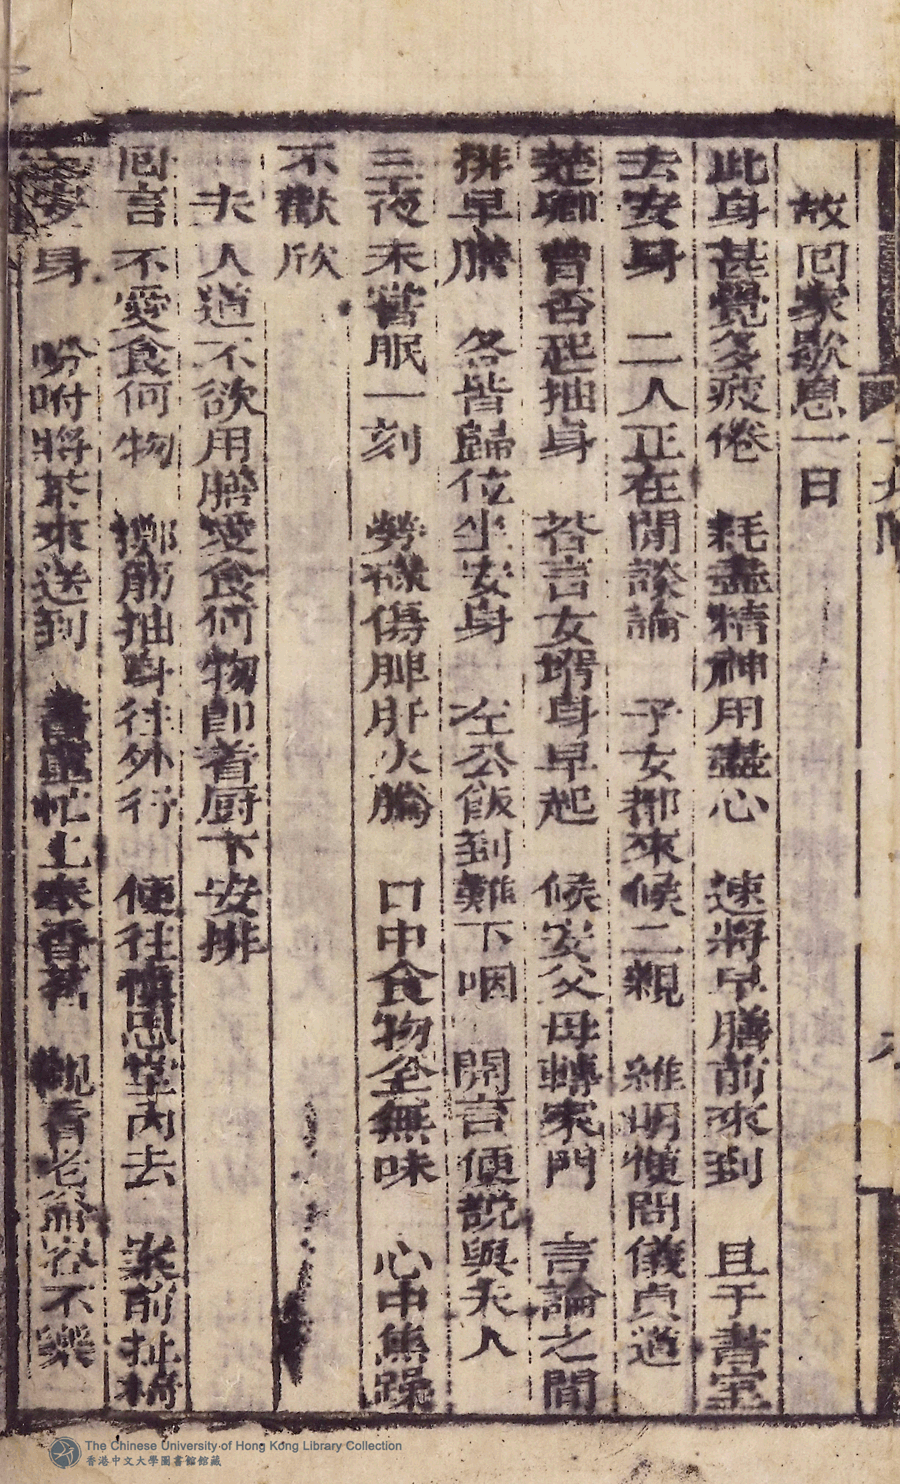 故回家歇息一日
此身甚覺多疲倦　耗盡精神用盡心　速將早膳前來到　且于書室
去安身　二人正在閒談論　子女都來候二親　維明便問儀貞道
楚卿曾否起抽身　答言女壻身早起　候安父母轉家門　言論之間
排早膳　各皆歸位坐安身　左公飯到難下咽　開言便說與夫人
三夜未嘗眠一刻　勞祿傷脾肝火騰　口中食物全無味　心中焦躁
不歡欣
夫人道不欲用膳愛食何物即着厨下安排
回言不愛食何物　擲筯抽身往外行　便往慎思堂內去　案前扯椅
安身　吩咐將茶來送到　書童忙上奉香茗　觀看老爺容不樂
The Chinese University of Hong Kong Library Collection
香港中文大學圖書館館藏